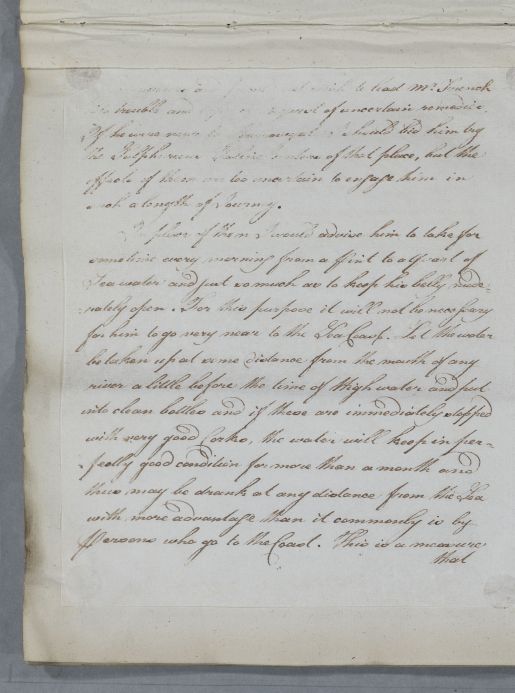 to lead Mr. French
trouble and of uncertain remedies.
If he were near to Harrowgate I should bid him try
the Sulphureous Saline waters of that place, but the
effects of them are too uncertain to engage him in
such a length of Journey.
In place of them I would advise him to take for
sometime every morning from a pint to a Quart of
Sea water and just so much as to keep his belly mode-
rately open. For this purpose it will not be necessary
for him to go very near to the Sea Coast. Let the water
be taken up at some distance from the mouth of any
river a little before the time of High water and put
into clean bottles and if these are immediately stopped
with very good Corks, the water will keep in per-
fectly good condition for more than a month and
thus may be drank at any distance from the Sea
with more advantage than it commonly is by
Persons who go to the Coast. This is a measure
that